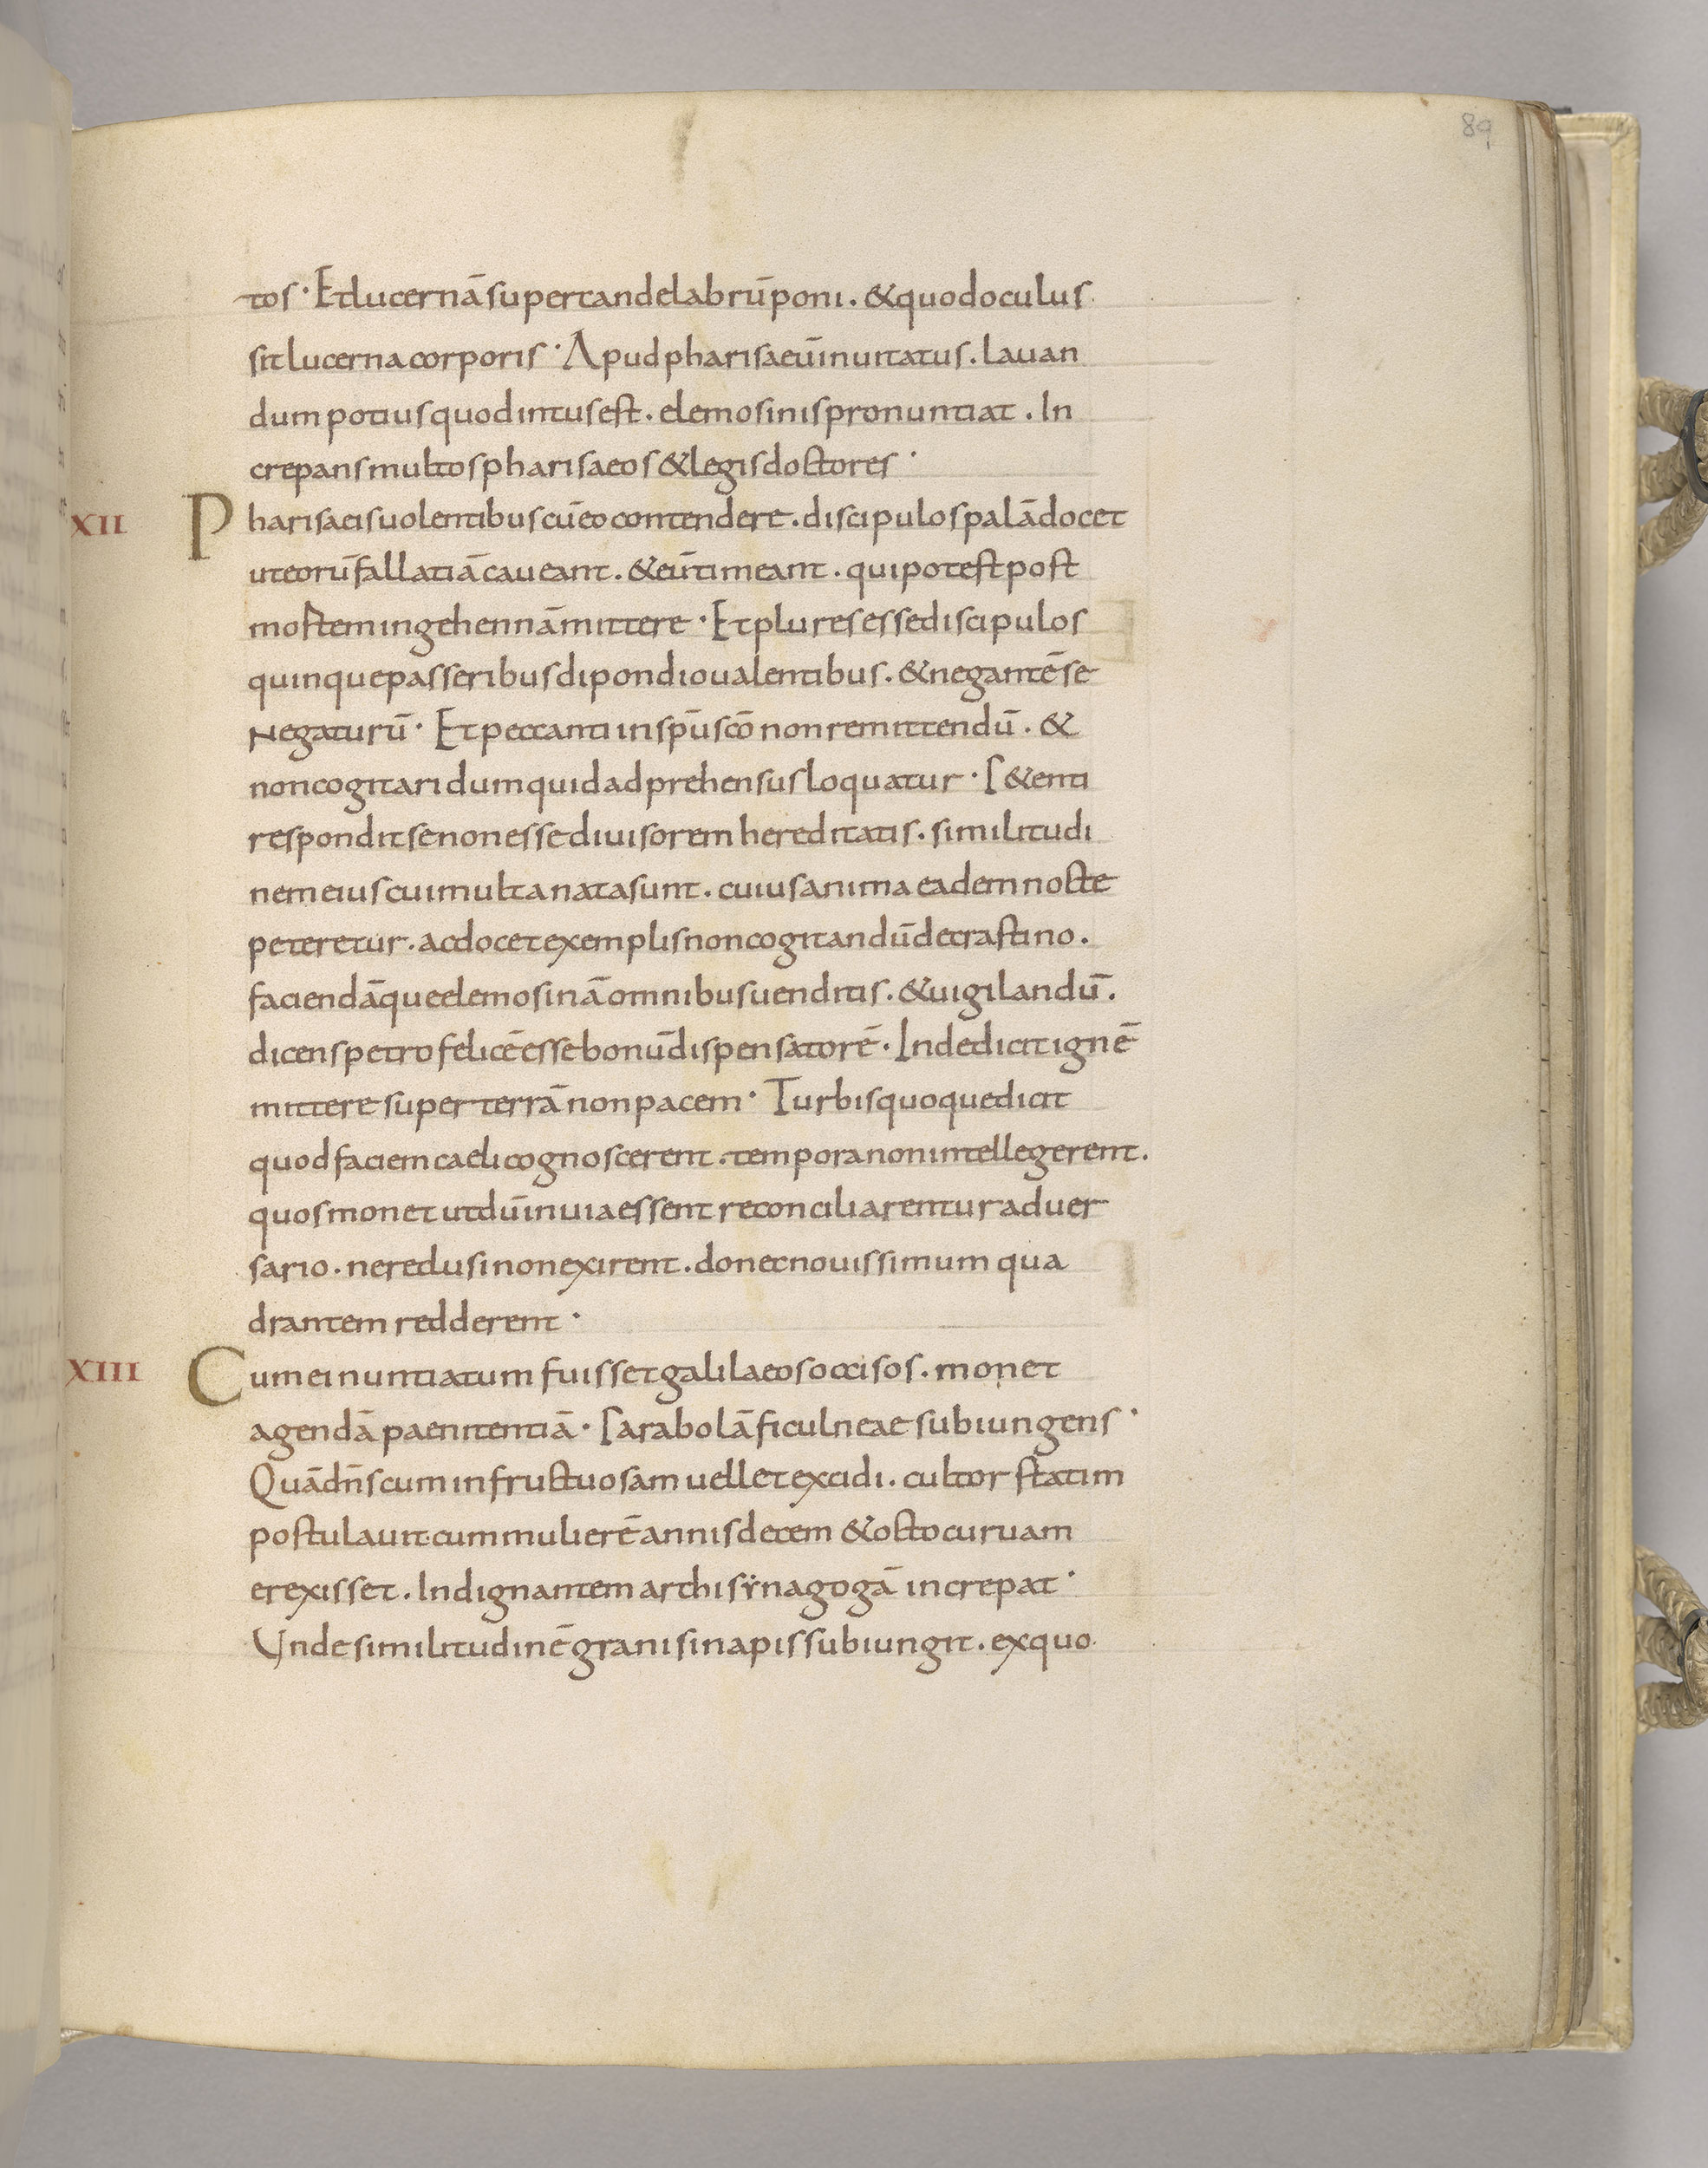 89
tos · Et lucernā super candelabrū poni . & quod oculus
sit lucerna corporis · Apud pharisaeū inuitatus . lauan
dum potius quod intus est . elemosinis pronuntiat . In
crepans multos pharisaeos & legis doctores ·
XII Pharisaeis uolentibus cū eo contendere . discipulos palā docet
ut eorū fallatiā caueant . & eū timeant . qui potest post
moſtem in gehennā mittere · Et plures esse discipulos
quinque passeribus dipondio ualentibus . & negantē se
Negaturū · Et peccanti in sp̄u sc̄o non remittendū . &
non cogitari dum quid adprehensus loquatur · P&enti
respondit se non esse diuisorem hereditatis . similitudi
nem eius cui multa nata sunt . cuius anima eadem nocte
peteretur . ac docet exemplis non cogitandū de crastino .
faciendāque elemosinā omnibus uenditis . & uigilandū .
dicens petro felicē esse bonū dispensatorē . Inde dicit ignē
mittere super terrā non pacem · Turbis quoque dicit
quod faciem caeli cognoscerent . tempora non intellegerent .
quos monet ut dū in uia essent reconciliarentur aduer
sario . ne reclusi non exirent . donec nouissimum qua
drantem redderent ·
XIII Cum ei nuntiatum fuisset galilaeos occisos . monet
agendā paenitentiā · Parabolā ficulneae subiungens ·
Quā dn̄s cum infructuosam uellet excidi . cultor statim
postulauit . cum mulierē annis decem & octo curuam
erexisset . Indignantem archisẏnagogā increpat ·
Unde similitudinē grani sinapis subiungit . ex quo